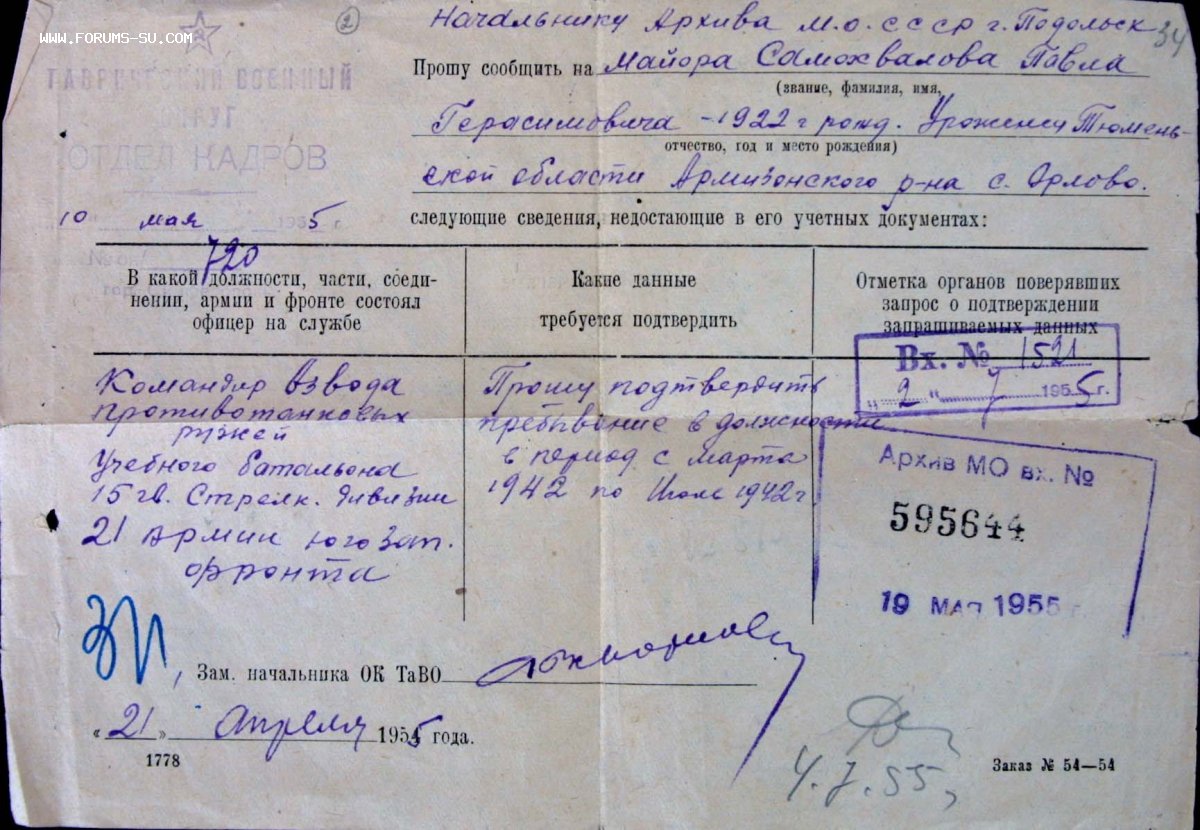 WWW.FORUMS-SU.COM
2
Начальнику Архива М.О. СССР г. Подольск
34
Прошу сообщить на майора Самохвалова Павла
(звание, фамилия, имя,
Герасимовича - 1922 г рожд. Уроженец Тюмень-
отчество, год и место рождения)
ской области Армизонского р-на с. Орлово.
ТАВРИЧЕСКИЙ ВОЕННЫЙ
ОКРУГ
ОТДЕЛ КАДРОВ
10 мая 1955 г.
720
следующие сведения, недостающие в его учетных документах:
В какой должности, части, соеди-
нении, армии и фронте состоял
офицер на службе
Какие данные
требуется подтвердить
Отметка органов поверявших
запрос о подтверждении
запрашиваемых данных
Командир взвода
противотанковых
ружей
Учебного батальона
15 гв. Стрелк. дивизии
21 Армии югозап.
фронта
Прошу подтвердить
пребывание в должности
в период с марта
1942 по Июль 1942 г
Вх. № 1521
„ 2 “ 7 1955 г.
Архив МО вх. №
595644
19 МАЯ 1955 г.
Зам. начальника ОК ТаВО
« 21 » Апреля 1955 года.
1778
4.7.55,
Заказ № 54—54